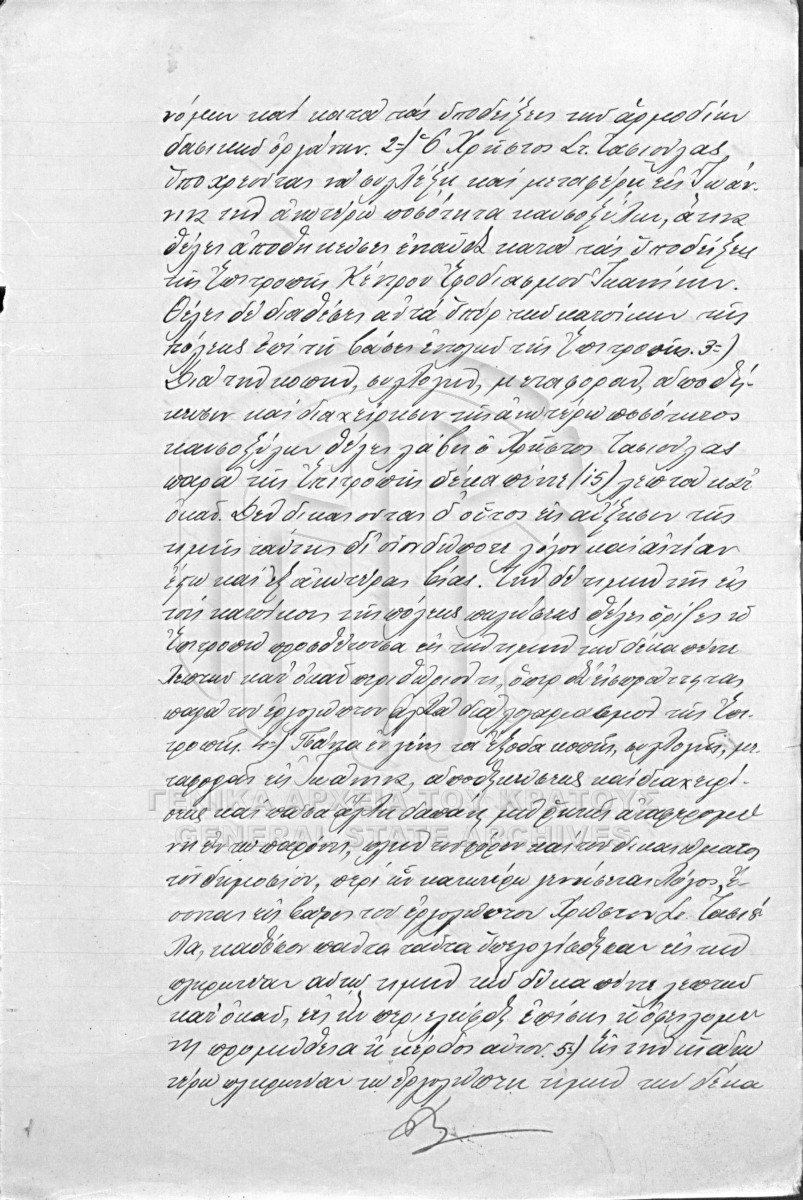 νόμων καὶ κατὰ τὰς ὑποδείξεις τῶν ἁρμοδίων
δασικῶν ὀργάνων. 2=) Ὁ Χρῆστος Στ. Τασιούλας
ὑποχρεοῦται νὰ συλλέξῃ καὶ μεταφέρῃ εἰς Ἰωάν-
νινα τὴν ἀνωτέρω ποσότητα καυσοξύλων, ἅτινα
θέλει ἀποθηκεύσει ἐνταῦθα κατὰ τὰς ὑποδείξεις
τῆς Ἐπιτροπῆς Κέντρου Ἐφοδιασμοῦ Ἰωαννίνων.
Θέλει δὲ διαθέσει αὐτὰ ὑπὲρ τῶν κατοίκων τῆς
πόλεως ἐπὶ τῇ βάσει ἐντολῶν τῆς Ἐπιτροπῆς. 3=)
Διὰ τὴν κοπήν, συλλογήν, μεταφοράν, ἀποθή-
κευσιν καὶ διαχείρισιν τῆς ἀνωτέρω ποσότητος
καυσοξύλων θέλει λάβει ὁ Χρῆστος Τασιούλας
παρὰ τῆς Ἐπιτροπῆς δέκα πέντε (15) λεπτὰ κατ'
ὀκᾶν. Δὲν δικαιοῦται δ' οὗτος εἰς αὔξησιν τῆς
τιμῆς ταύτης δι' οἱονδήποτε λόγον καὶ αἰτίαν
ἔστω καὶ ἐξ ἀνωτέρας βίας. Τὴν δὲ τιμὴν τῆς εἰς
τοὺς κατοίκους τῆς πόλεως πωλήσεως θέλει ὁρίσει ἡ
Ἐπιτροπὴ προσθέτουσα εἰς τὴν τιμὴν τῶν δέκα πέντε
λεπτῶν κατ' ὀκᾶν περιθώριόν τι, ὅπερ θὰ εἰσπράττηται
παρὰ τοῦ ἐργολάβου ἀλλὰ διὰ λογαριασμὸν τῆς Ἐπι-
τροπῆς. 4=) Πάντα ἐν γένει τὰ ἔξοδα κοπῆς, συλλογῆς, με-
ταφορᾶς εἰς Ἰωάννινα, ἀποθηκεύσεως καὶ διαχειρί-
σεως καὶ πᾶσα ἄλλη δαπάνη μὴ ῥητῶς ἀναφερομέ-
νη ἐν τῷ παρόντι, πλὴν τοῦ φόρου καὶ τοῦ δικαιώματος
τοῦ δημοσίου, περὶ ὧν κατωτέρω γενήσεται λόγος, ἔ-
σονται εἰς βάρος τοῦ ἐργολάβου Χρήστου Στ. Τασιού-
λα, καθόσον πάντα ταῦτα ὑπελογίσθησαν εἰς τὴν
πληρωτέαν αὐτῷ τιμὴν τῶν δέκα πέντε λεπτῶν
κατ' ὀκᾶν, εἰς ἣν περιελήφθη ἐπίσης ἡ ὀφειλομέ-
νη προμήθεια ἢ κέρδος αὐτοῦ. 5=) Εἰς τὴν ὡς ἀνω-
τέρω πληρωτέαν τῷ ἐργολάβῳ τιμὴν τῶν δέκα
ΓΕΝΙΚΑ ΑΡΧΕΙΑ ΤΟΥ ΚΡΑΤΟΥΣ
GENERAL STATE ARCHIVES